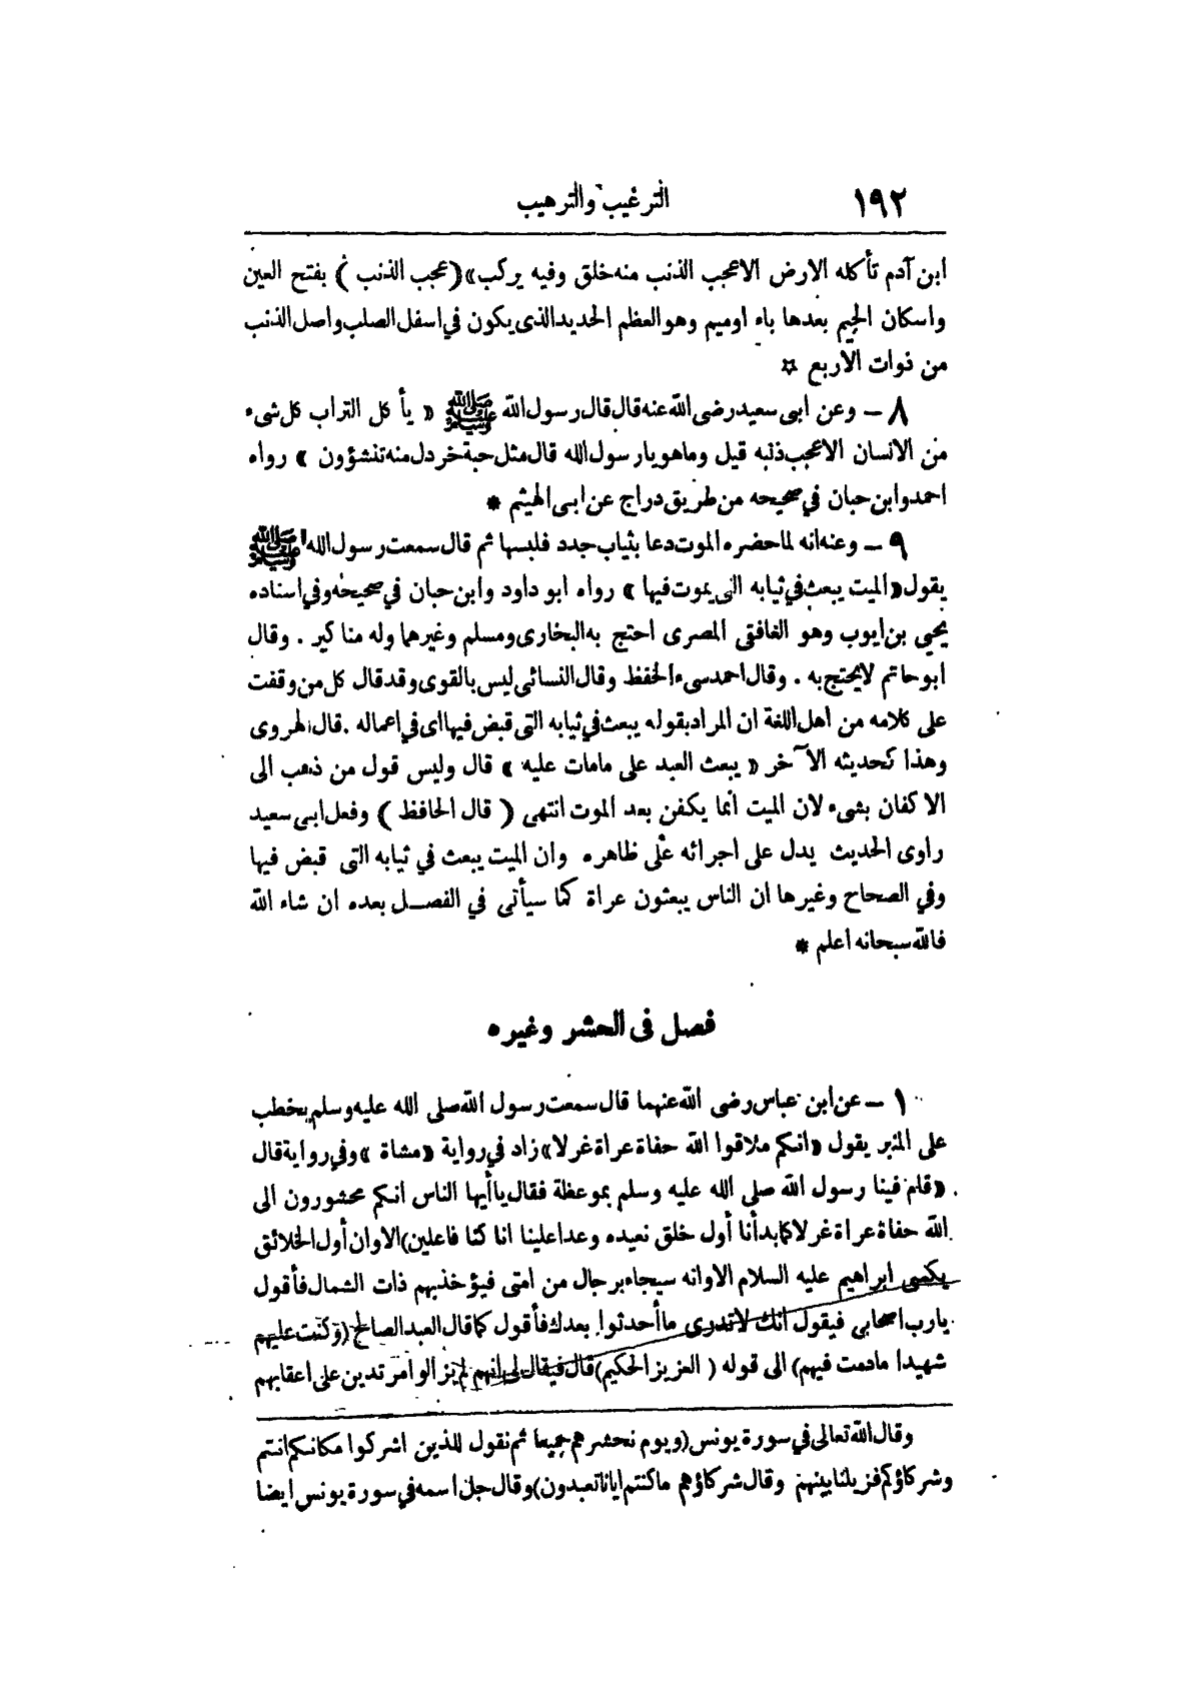 ١٩٢ الترغيب والترهيب
ابن آدم تأكله الارض الا عجب الذنب منه خلق وفيه يركب» (عجب الذنب) بفتح العين
واسكان الجيم بعدها باء اوميم وهو العظم الحديد الذى يكون في اسفل الصلب واصل الذنب
من ذوات الاربع ¤
٨ – وعن ابى سعيد رضى الله عنه قال قال رسول الله ﷺ « يأ كل التراب كل شىء
من الانسان الا عجب ذنبه قيل وما هو يارسول الله قال مثل حبة خردل منه تنشؤون » رواه
احمد وابن حبان في صحيحه من طريق دراج عن ابى الهيثم *
٩ – وعنه انه لما حضره الموت دعا بثياب جدد فلبسها ثم قال سمعت رسول الله ﷺ
يقول «الميت يبعث في ثيابه التى يموت فيها » رواه ابو داود وابن حبان في صحيحه وفي اسناده
يحيي بن ايوب وهو الغافقى المصرى احتج به البخارى ومسلم وغيرهما وله منا كير . وقال
ابو حاتم لا يحتج به . وقال احمد سىء الحفظ وقال النسائى ليس بالقوى وقد قال كل من وقفت
على كلامه من اهل اللغة ان المراد بقوله يبعث في ثيابه التى قبض فيها اى في اعماله .قال الهروى
وهذا كحديثه الآخر « يبعث العبد على مامات عليه » قال وليس قول من ذهب الى
الا كفان بشىء لان الميت انما يكفن بعد الموت انتهى ( قال الحافظ ) وفعل ابى سعيد
راوى الحديث يدل على اجرائه على ظاهره وان الميت يبعث في ثيابه التى قبض فيها
وفي الصحاح وغيرها ان الناس يبعثون عراة كما سيأتى في الفصـل بعده ان شاء الله
فالله سبحانه اعلم *
فصل فى الحشر وغيره
١ – عن ابن عباس رضى الله عنهما قال سمعت رسول الله صلى الله عليه وسلم يخطب
على المنبر يقول «انكم ملاقوا الله حفاة عراة غرلا» زاد في رواية «مشاة » وفي رواية قال
«قام فينا رسول الله صلى الله عليه وسلم بموعظة فقال ياأيها الناس انكم محشورون الى
الله حفاة عراة غرلا كما بدأنا أول خلق نعيده وعدا علينا انا كنا فاعلين) الا وان أول الخلائق
يكسى ابراهيم عليه السلام الا وانه سيجاء برجال من امتى فيؤخذ بهم ذات الشمال فأقول
يارب اصحابى فيقول انك لا تدرى ماأحدثوا بعدك فأقول كما قال العبد الصالح (وكنت عليهم
شهيدا مادمت فيهم) الى قوله ( العزيز الحكيم) قال فيقال لى انهم لم يزالوا مرتدين على اعقابهم
وقال الله تعالى في سورة يونس (ويوم نحشرهم جميعا ثم نقول للذين اشركوا مكانكم انتم
وشركاؤكم فزيلنا بينهم وقال شركاؤهم ماكنتم ايانا تعبدون) وقال جل اسمه في سورة يونس ايضا